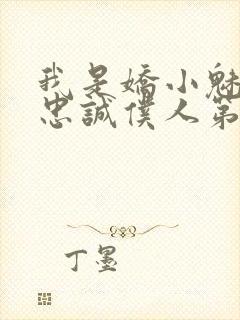 我是嬌小魅
忠誠僕人第
丁墨